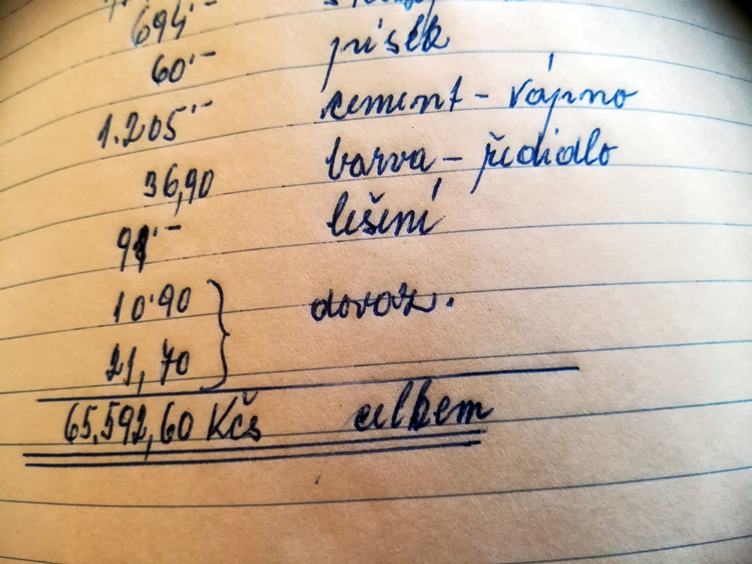 694·– písek
60·– cement – vápno
1.205·– barva – ředidlo
36,90 lešení
91·–
10·90 dovoz.
21,70
65.592,60 Kčs celkem